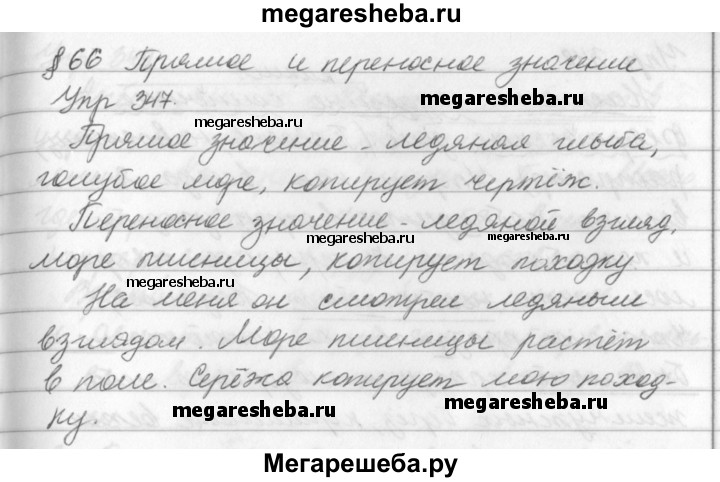 megaresheba.ru
§66 Прямое и переносное значение
Упр 347.
megaresheba.ru
megaresheba.ru
Прямое значение - ледяная глыба,
голубое море, копирует чертёж.
Переносное значение - ледяной взгляд,
megaresheba.ru
megaresheba.ru
море пшеницы, копирует походку
megaresheba.ru
На меня он смотрел ледяным
взглядом. Море пшеницы растёт
в поле. Серёжа копирует мою поход-
megaresheba.ru
megaresheba.ru
ку.
Мегарешеба.ру